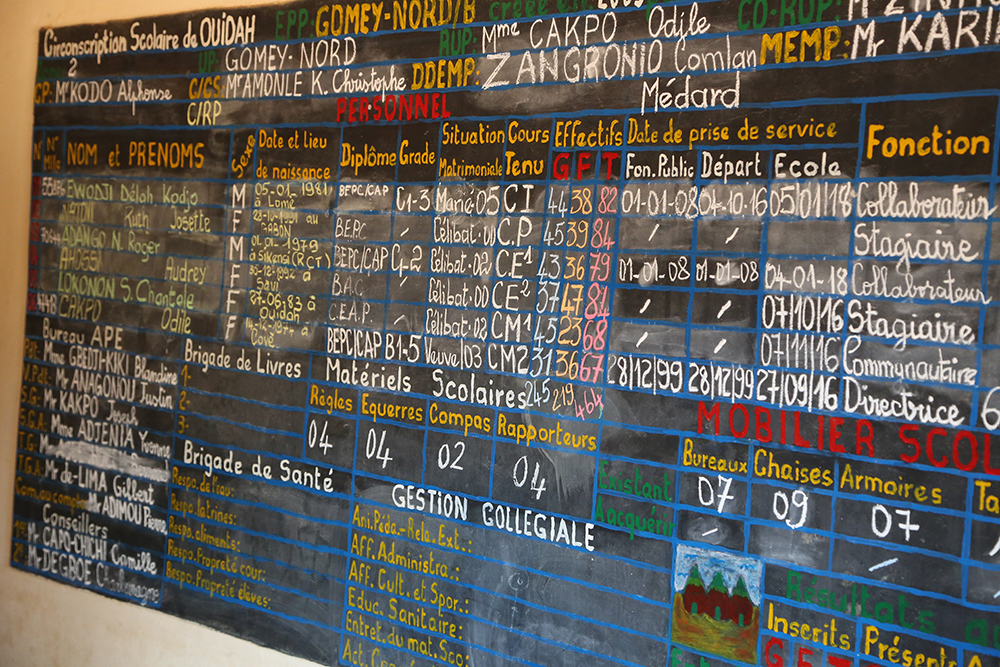 Circonscription Scolaire de OUIDAH EPP: GOMEY-NORD/B créée
2 UP: GOMEY-NORD RUP: Mme CAKPO Odile CO-RUP:
CP: Mr KODO Alphonse C/CS: Mr AMONLE K. Christophe DDEMP: ZANGRONIO Comlan Médard MEMP: Mr KARI
C/RP PERSONNEL
N° N° Mlle NOM et PRENOMS Sexe Date et lieu de naissance Diplôme Grade Situation Matrimoniale Cours Tenu Effectifs G F T Date de prise de service Fon. Public Départ Ecole Fonction
EWODJI Délah Kodjo M 05-01-1981 à Lomé BEPC/CAP C1-3 Marié 05 CI 44 38 82 01-01-08 04-10-16 05/01/18 Collaborateur
Ruth Josette F GABON B.E.P.C Célibat. 00 C.P 45 39 84 Stagiaire
ADANGO N. Roger M 01-01-1979 à Sikensi (RCT) BEPC/CAP C1-2 Célibat. 02 CE1 43 36 79 01-01-08 01-01-08 04-01-18 Collaborateur
AHOSSI Audrey F 30-12-1992 à Savi B.A.C. Célibat. 00 CE2 37 47 84 07/10/16 Stagiaire
LOKONON S. Chantale F 27-06-83 à Ouidah C.E.A.P. Célibat. 03 CM1 45 23 68 07/11/16 Communautaire
CAKPO Odile F Cové BEPC/CAP B1-5 Veuve 03 CM2 31 36 67 28/12/99 28/12/99 27/09/16 Directrice
245 219 464
Bureau APE
Pdt: Mme GBEDJI-KIKI Blandine
V.Pdt: Mr ANAGONOU Justin
S.G: Mr KAKPO Joseph
S.G.A: Mme ADJENIA Yvonne
T.G:
T.G.A: Mr de-LIMA Gilbert
Com. au compte: Mr ADIMOU Pierre
Conseillers
1er: Mr CAPO-CHICHI Camille
2e: Mr DEGBOE
Brigade de Livres
1-
2-
3-
Brigade de Santé
Respo. de l'eau:
Respo. latrines:
Respo. aliments:
Respo. Propreté cour:
Respo. Propreté élèves:
Matériels Scolaires
Règles Equerres Compas Rapporteurs
04 04 02 04
GESTION COLLEGIALE
Ani. Péda.- Rela. Ext.:
Aff. Administra.:
Aff. Cult. et Spor.:
Educ. Sanitaire:
Entret. du mat. Sco:
MOBILIER SCOL
Bureaux Chaises Armoires Ta
Existant 07 09 07
A acquérir
Résultats
Inscrits Présents
G F T